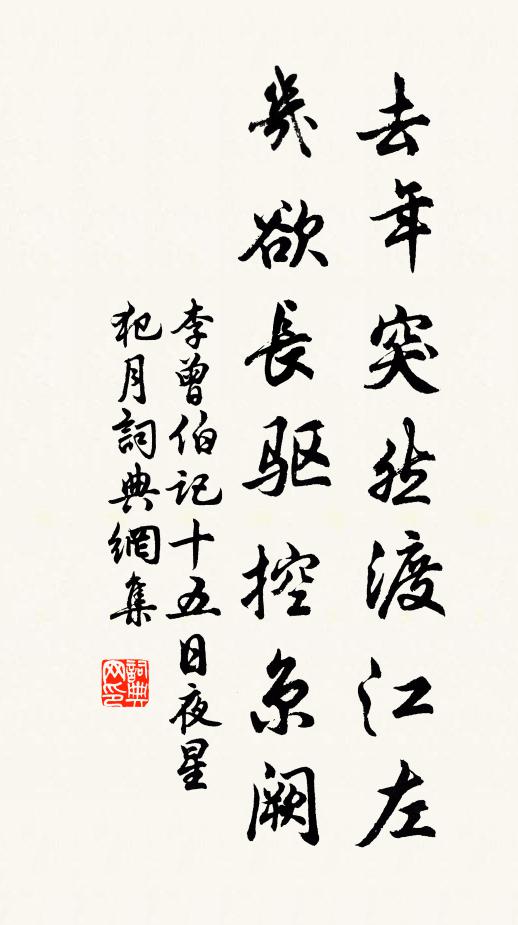 去年突然渡江左
几欲長驱控京阙
李曾伯记十五日夜星
犯月詞典網集
詞典网印